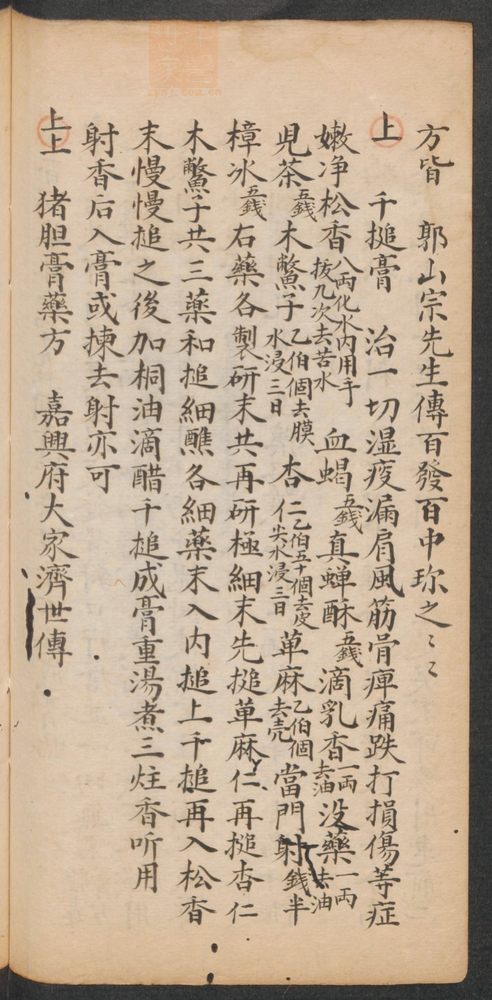 方皆　郭山宗先生傳百發百中珎之〻〻
上　千搥膏　治一切湿痰漏肩風筋骨痺痛跌打損傷等症
嫩净松香八兩化水内用手拔九次去苦水　血蝎五錢真蟬酥五錢滴乳香一兩去油没藥一兩去油
児茶五錢木鱉子乙伯個去膜水浸三日　杏仁二乙伯五十個去皮尖水浸三日草麻乙伯個去壳當門射錢半
樟氷五錢右藥各製研末共再研極細末先搥草麻仁再搥杏仁
木鱉子共三藥和搥細醮各細藥末入内搥上千搥再入松香
末慢慢搥之後加桐油滴醋千搥成膏重湯煮三炷香听用
射香后入膏或揀去射亦可
上上　猪胆膏藥方　嘉興府大家濟世傳